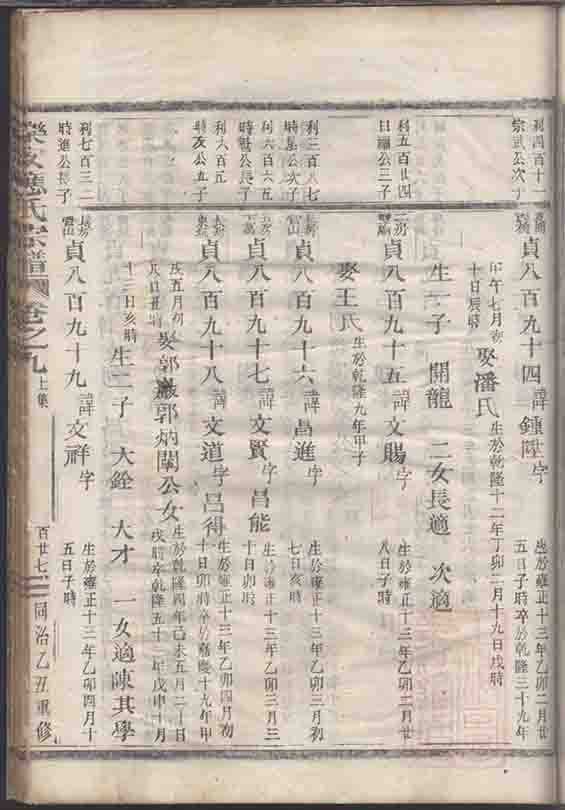 利四百十一
宗武公次子
貞八百九十四 諱鍾陞 字
生於雍正十三年乙卯二月廿
五日子時卒於乾隆三十九年
甲午七月初
十日辰時
娶潘氏
生於乾隆十二年丁卯二月十九日戌時
生一子 開龍 二女長適 次適
利五百廿四
日 公三子
二房
貞八百九十五 諱文賜 字
生於雍正十三年乙卯二月廿
八日子時
娶王氏
生於乾隆九年甲子
利三百八七
時 公次子
長房
官山
貞八百九十六 諱昌進 字
生於雍正十三年乙卯三月初
七日亥時
利六百六五
時 公長子
貞八百九十七 諱文賢 字昌能
生於雍正十三年乙卯三月三
十日卯時
利六百五
時友公五子
貞八百九十八 諱文道 字呂得
生於雍正十三年乙卯四月初
十日卯時卒於嘉慶十九年甲
戌五月初
八日丑時
娶郭巖郭炳闈公女
生於乾隆四年己未五月二十日
戌時卒乾隆五十三年戊申十月
十三日亥時
生二子 大銓 大才 一女適陳其學
利七百三二
時進公長子
長房
官山
貞八百九十九 諱文祥 字
生於雍正十三年乙卯四月十
五日子時
應氏宗譜 卷之九 上集 百廿七 同治乙丑重修